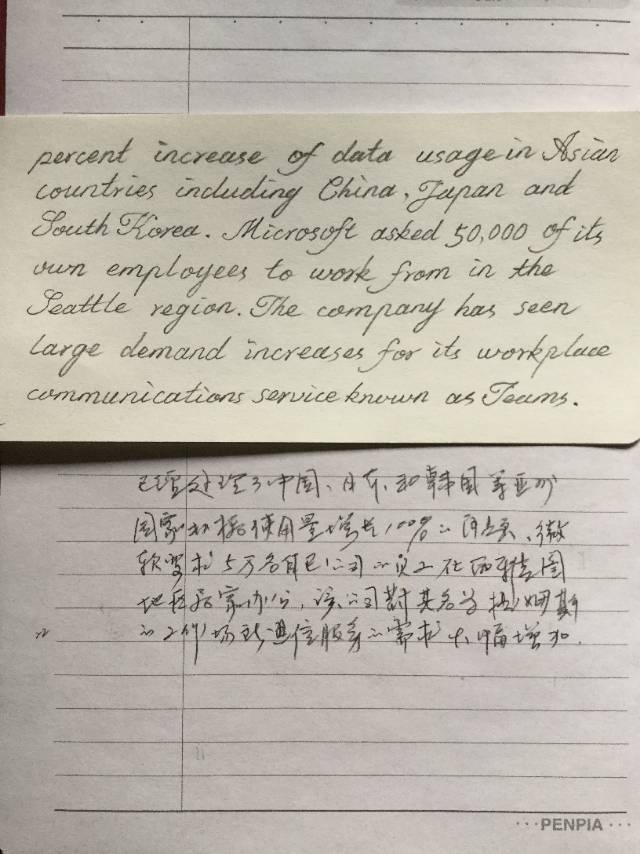 percent increase of data usage in Asian
countries including China, Japan and
South Korea. Microsoft asked 50,000 of its
own employees to work from in the
Seattle region. The company has seen
large demand increases for its workplace
communications service known as Teams.
已经处理了中国、日本、和韩国等亚州
国家数据使用量增长100%的
软要求5万名自已公司的员工在西雅图
地区居家办公, 该公司对其名为 姆斯
的工作场所通信服务的需求大幅增加.
···PENPIA···